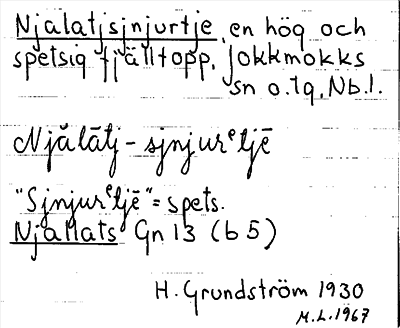 Njalatjsjnjurtje, en hög och
spetsig fjälltopp, Jokkmokks
sn o. tg, Nb. l.
Njălātj - sjnjurᵉtjē
"Sjnjurᵉtjē" = spets.
Njallats Gn 13 (b 5)
H. Grundström 1930
M.L. 1967